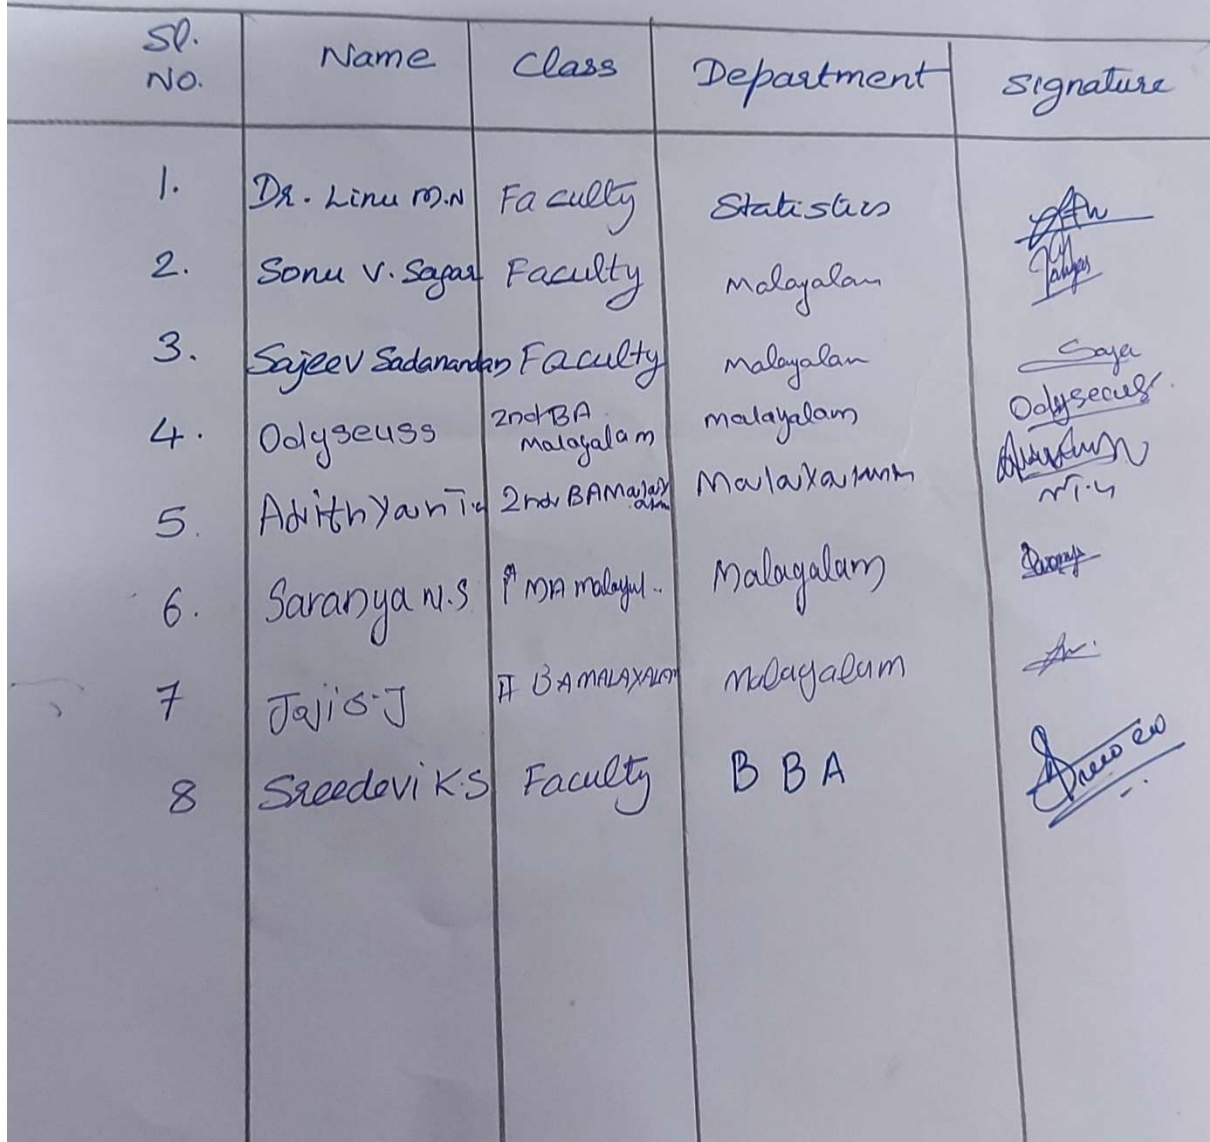 Sl. No. Name Class Department Signature
1. Dr. Linu M.N Faculty Statistics
2. Sonu V. Sagar Faculty Malayalam
3. Sajeev Sadanandan Faculty Malayalam
4. Odyseuss 2nd BA Malayalam Malayalam Odyseuss
5. Adithyan T.U 2nd BA Malayalam Malayalam
6. Saranya N.S MA Malayal.. Malayalam
7 Jajis.J II BA MALAYALAM Malayalam
8 Sreedevi K.S Faculty BBA